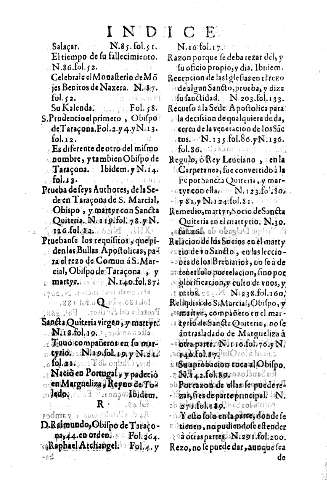 INDICE
Salaçar. N. 85. fol. 51.
El tiempo de su fallecimiento.
N. 86. fol. 52.
Celebrale el Monasterio de Mõ
jes Benitos de Naxera. N. 87.
fol. 52.
Su Kalenda. Fol. 58.
S. Prudencio el primero, Obispo
de Taraçona. Fol. 2. y 4. y N. 13.
fol. 12.
Es diferente de otro del mismo
nombre, y tambien Obispo de
Taraçona. Ibidem. y N. 14.
fol. 13.
Prueba de seys Authores, de la Se-
de en Taraçona de S. Marcial,
Obispo, y martyr con Sancta
Quiteria. N. 119. fol. 78. y N.
126. fol. 82.
Pruebanse los requisitos, que pi-
den las Bullas Apostolicas, pa-
ra el rezo de Comun â S. Mar-
cial, Obispo de Taraçona, y
martyr. N. 140. fol. 87.
Q
Sancta Quiteria virgen, y martyr.
N. 18. fol. 19.
Tuuo compañeros en su mar-
tyrio. N. 19. fol. 19. y N. 24.
fol. 21.
Naciò en Portugal, y padeciò
en Margueliza, Reyno de To-
ledo. Ibidem.
R
D. Raimundo, Obispo de Taraço-
na, 44. en orden. Fol. 264.
S. Raphael Archangel. Fol. 4. y
N. 10. fol. 17.
Razon porque se deba rezar del, y
su oficio propio, y dia. Ibidem.
Recepcion de las Iglesias en el rezo
de algun Sancto, prueba, y diza
su sanctidad. N. 203. fol. 133.
Recurso â la Sede Apostolica para
la decision de qualquiera duda,
cerca de la veneracion de los Sãc
tos. N. 135. fol. 86. y N. 136.
fol. 86.
Regulo, ò Rey Leuciano, en la
Carpetanea, fue convertido â la
Fè por Sancta Quiteria, y mar-
tyr con ella. N. 123. fol. 80.
y 82. y N. 124. fol. 81.
Remedio, martyr, Socio de Sancta
Quiteria en el martyrio. N. 30.
fol. 26.
Relacion de los Socios en el marty
rio de un Sancto, en las leccio-
nes de los Breviarios, no se ha de
tener solo por relacion, sino por
glorificacion, y culto de votos, y
unicos. N. 238. fol. 160.
Reliquias de S. Marcial, Obispo, y
martyr, compañero en el marty-
rio de Sancta Quiteria, no se â
ân trasladado de Margueliza â
otra parte. N. 110. fol. 70. y N.
140. fol. 87.
Su aprobacion toca al Obispo.
N. 142. fol. 89.
Por razon de ellas se puede re-
zar, si es parte principal. N.
271. fol. 189.
Y esto solo en la parte, donde se
tienen, no pudiendose estender
â otras partes. N. 291. fol. 200.
Rezo, no se puede dar, aunque sea
de